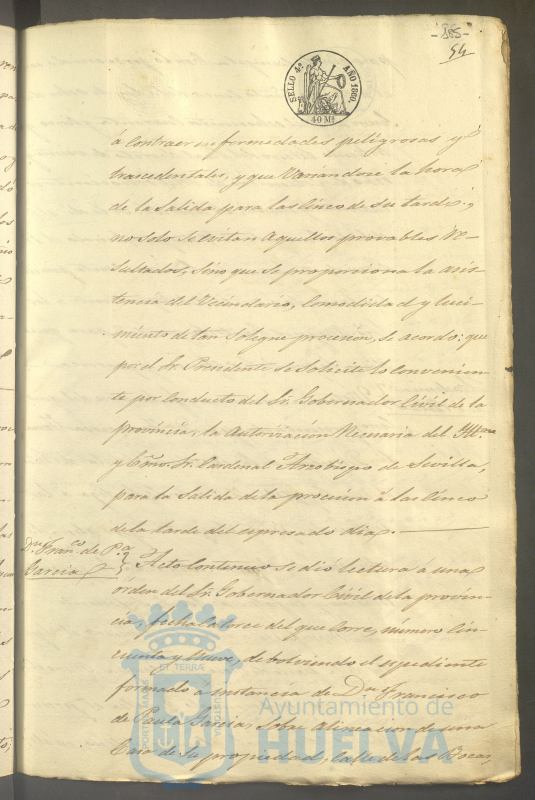 -185-
54
SELLO 4º AÑO 1860.
40 Mˢ
á contraer enfermedades peligrosas y
trascedentales, y que variandose la hora
de la salida para las cinco de su tarde,
no solo se evitan aquellos provables re-
sultados, sino que se proporciona la asis-
tencia del vecindario, comodidad y luci-
miento de tan solegne procesion, se acordo: que
por el Sr. Presidente se solicite lo convenien-
te por conducto del Sr. Gobernador Civil de la
provincia, la autorizacion necesaria del Yllmo
y Emo. Sr. Cardenal Arzobispo de Sevilla,
para la salida de la procesion á las cinco
de la tarde del espresado dia.
Dn. Franco. de P.a
Garcia
Acto continuo se dió lectura á una
órden del Sr. Gobernador Civil de la provin-
cia, fecha catorce del que corre, número cin-
cuenta y nueve, debolviendo el espediente
formado á instancia de Dn. Francisco
de Paula Garcia, sobre alineacion de una
casa de su propiedad, calle de las Bocas,
Ayuntamiento de
HUELVA